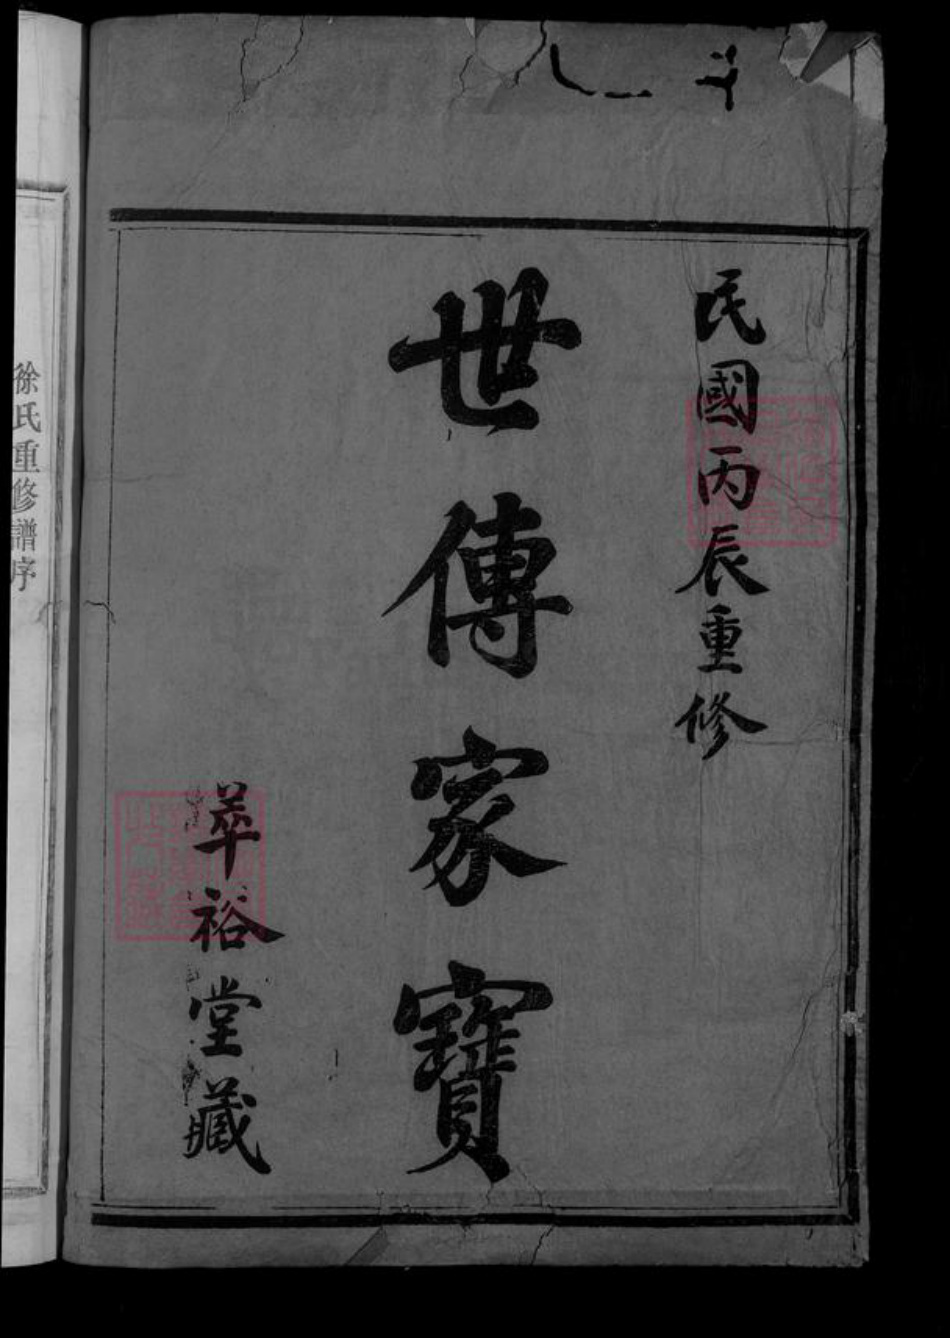 民國丙辰重修
世傳家寶
萃裕堂藏
徐氏重修譜序